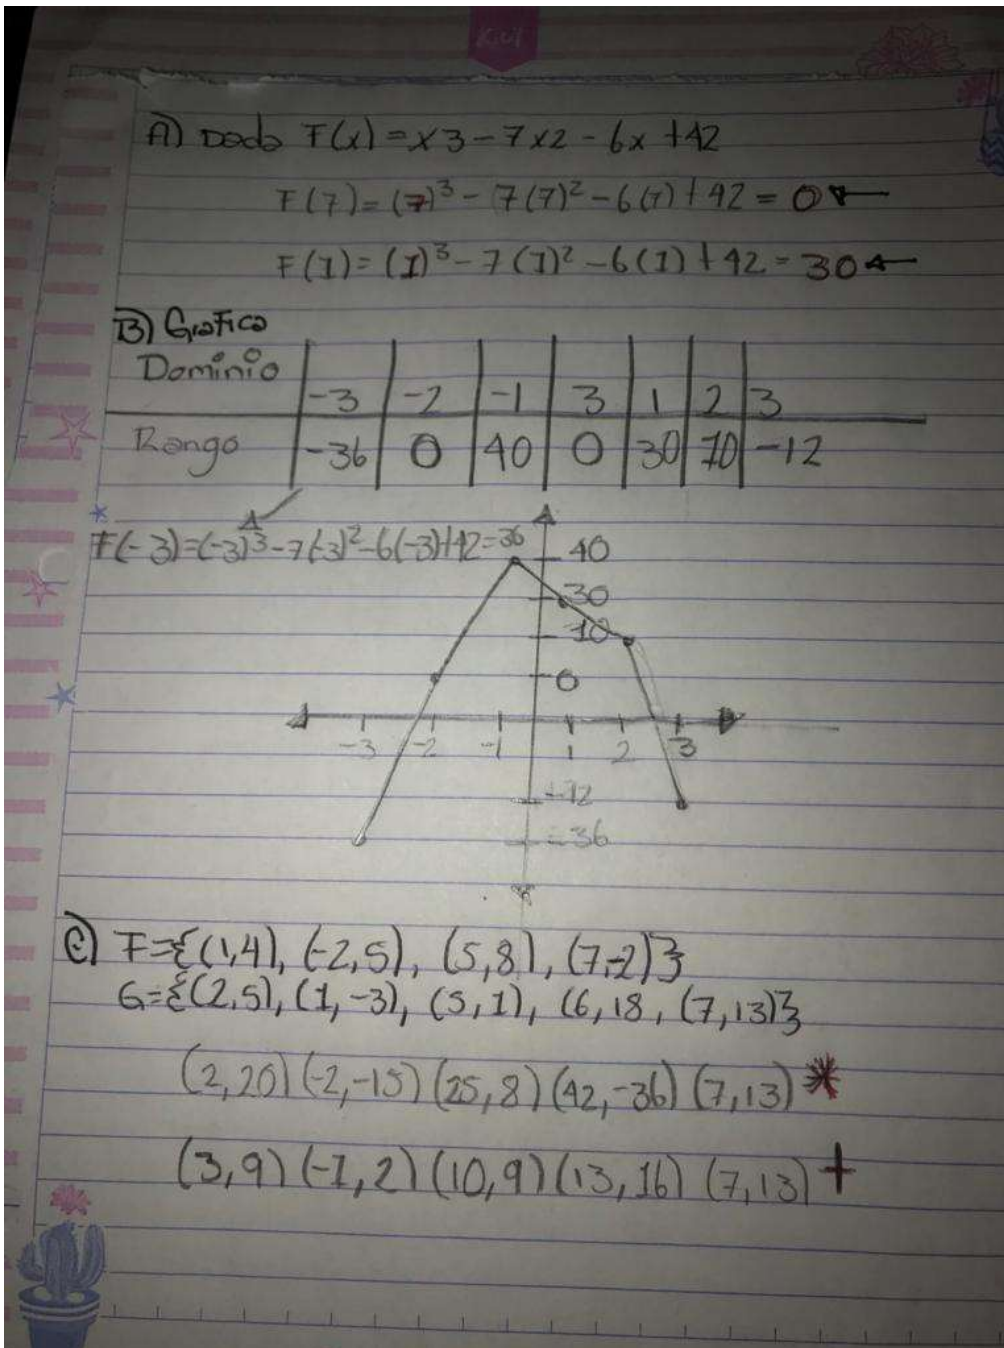 Kiut
A) Dado F(x) = x3 - 7x2 - 6x + 42
F(7) = (7)³ - 7(7)² - 6(7) + 42 = 0
F(1) = (1)³ - 7(1)² - 6(1) + 42 = 30
B) Grafica
Dominio -3 -2 -1 3 1 2 3
Rango -36 0 40 0 30 10 -12
F(-3)=(-3)³-7(-3)²-6(-3)+42=36
40
30
10
0
-3 -2 -1 1 2 3
-12
-36
C) F={(1,4), (-2,5), (5,8), (7,-2)}
G={(2,5), (1,-3), (5,1), (6,18, (7,13)}
(2,20) (-2,-15) (25,8) (42,-36) (7,13) *
(3,9) (-1,2) (10,9) (13,16) (7,13) +